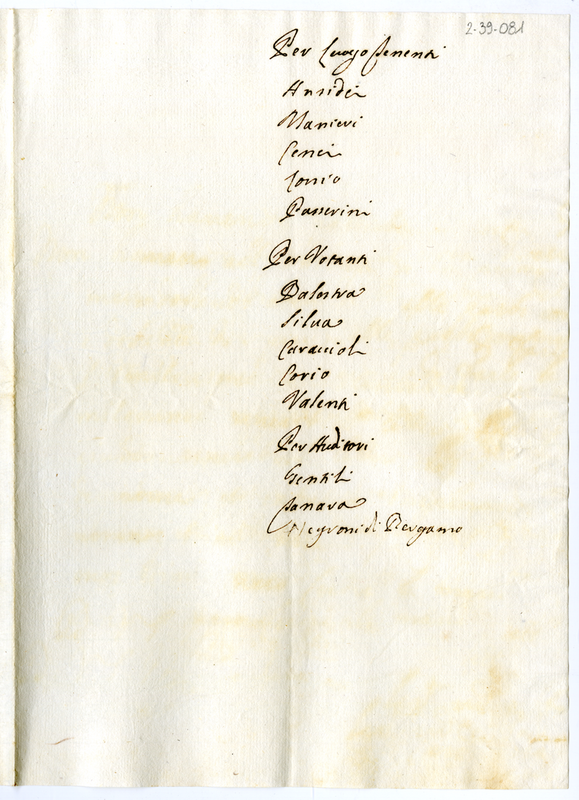 2-39-081
Per Luogo Tenenti
Ansidei
Manieri
Cenci
Passerini
Per Votanti
Balestra
Silva
Caraccioli
Corio
Valenti
Per Auditori
Gentili
Canara
Negroni di Bergamo